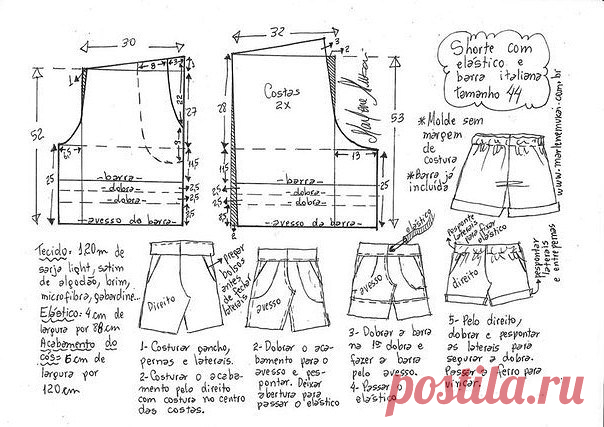 30
32
3
2
1
8
3
22
27
52
9
6,5
11,5
25
barra
dobra
dobra
avesso da barra
2,5
2,5
Costas
2X
Marlene Mukai
53
13
28
25
11,5
barra
dobra
dobra
avesso da barra
2,5
2,5
Shorte com
elástico e
barra italiana
tamanho 44
www.marlenemukai.com.br
*Molde sem
margem
de
costura
*Barra já
incluida
Tecido: 1,20m de
sarja light, satim
de algodão, brim,
microfibra, gabardine...
Elástico: 4cm de
largura por 88cm
Acabamento do
cós: 6cm de
largura por
120cm
Direito
pregar
bolsos
antes
de fechar
laterais
avesso
elástico
avesso
Pesponte
laterais
para fixar
elástico
direito
pespontar
laterais
e entrepernas
1- Costurar gancho,
pernas e laterais.
2- Costurar o acaba-
mento pelo direito
com costura no centro
das costas.
2- Dobrar o aca-
bamento para o
avesso e pes-
pontar. Deixar
abertura para
passar o elástico
3- Dobrar a barra
na 1ª dobra e
fazer a barra
pelo avesso.
4- Passar o
elástico
5- Pelo direito,
dobrar e pespontar
as laterais para
segurar a dobra.
Passar a ferro para
vincar.
postila.ru